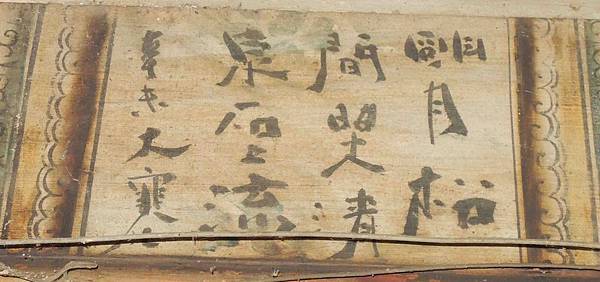 明月松
間照清
泉石上流
辛未大寒